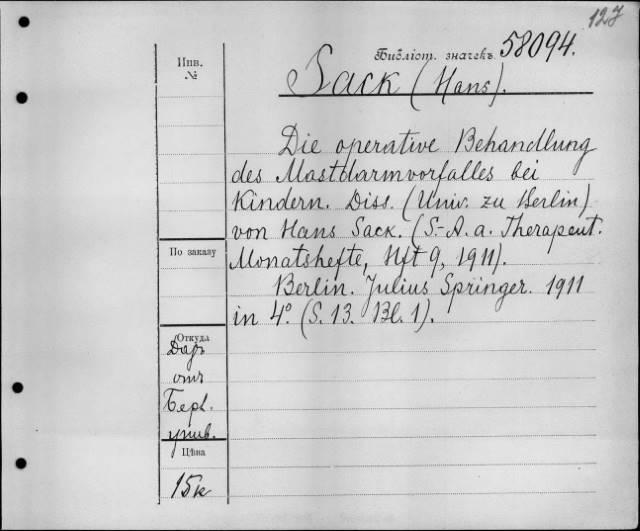 127
Библіот. значекъ 58094.
Инв.
№
Sack (Hans).
Die operative Behandlung
des Mastdarmvorfalles bei
Kindern. Diss. (Univ. zu Berlin)
von Hans Sack. (S.-A. a. Therapeut.
Monatshefte, Hft 9, 1911).
Berlin. Julius Springer. 1911
in 4º. (S. 13. Bl. 1).
По заказу
Откуда
Даръ
отъ
Берл.
унив.
Цѣна
15к